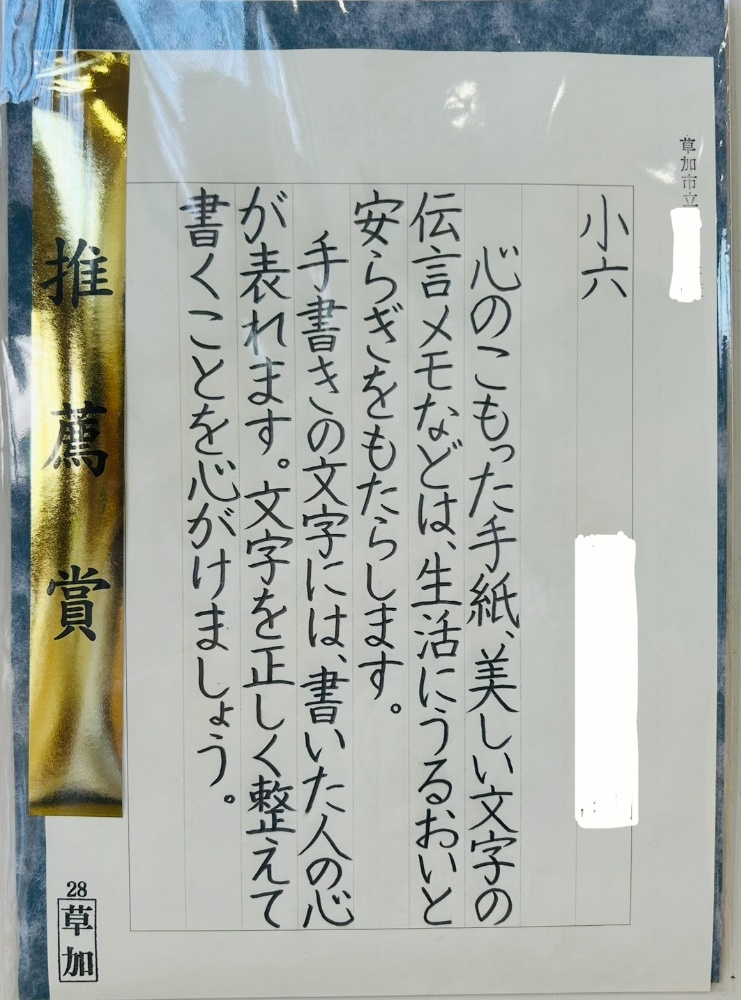 草加市立
小六
心のこもった手紙、美しい文字の
伝言メモなどは、生活にうるおいと
安らぎをもたらします。
手書きの文字には、書いた人の心
が表れます。文字を正しく整えて
書くことを心がけましょう。
推薦賞
28
草加